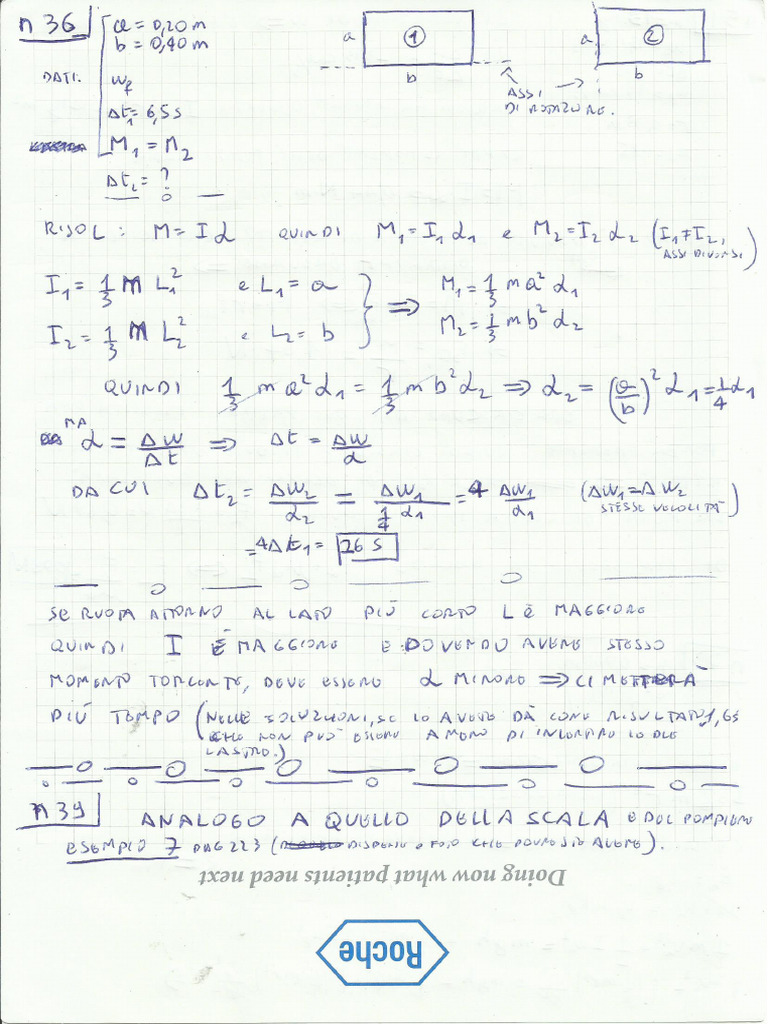 n 36
a = 0,20 m
b = 0,40 m
DATI.
ωf
Δt₁= 6,5 s
M₁ = M₂
Δt₂= ?
a ① b
a ② b
ASSI
DI ROTAZIONE.
RISOL: M= Iα QUINDI M₁=I₁α₁ e M₂=I₂α₂ (I₁≠I₂, ASSI DIVERSI)
I₁= 1/3 M L₁² e L₁= a
I₂= 1/3 M L₂² e L₂= b
⇒ M₁= 1/3 m a² α₁
M₂= 1/3 m b² α₂
QUINDI 1/3 m a² α₁ = 1/3 m b² α₂ ⇒ α₂ = (a/b)² α₁ = 1/4 α₁
MA α = Δω/Δt ⇒ Δt = Δω/α
DA CUI Δt₂ = Δω₂/α₂ = Δω₁/(1/4 α₁) = 4 Δω₁/α₁ (Δω₁=Δω₂ STESSE VELOCITÀ)
= 4Δt₁ = 26 s
SE RUOTA ATTORNO AL LATO PIÙ CORTO L È MAGGIORE
QUINDI I È MAGGIORE E DOVENDO AVERE STESSO
MOMENTO TORCENTE, DEVE ESSERE α MINORE ⇒ CI METTERÀ
PIÙ TEMPO (NELLE SOLUZIONI, SE LO AVETE DÀ COME RISULTATO 1,6 s
CHE NON PUÒ ESSERE A MENO DI INVERTIRE LE DUE
LASTRE.)
n 39 ANALOGO A QUELLO DELLA SCALA E DEL POMPIERE
ESEMPIO 7 PAG 223 ( DISPENSE O FOTO CHE DOVRESTE AVERE).
Doing now what patients need next
Roche